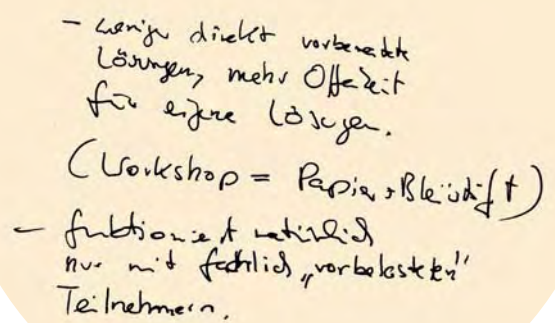 - weniger direkt vorbereitete
Lösungen, mehr Offenheit
für eigene Lösungen.
(Workshop = Papier + Bleistift)
- funktioniert natürlich
nur mit fachlich „vorbelasteten"
Teilnehmern.